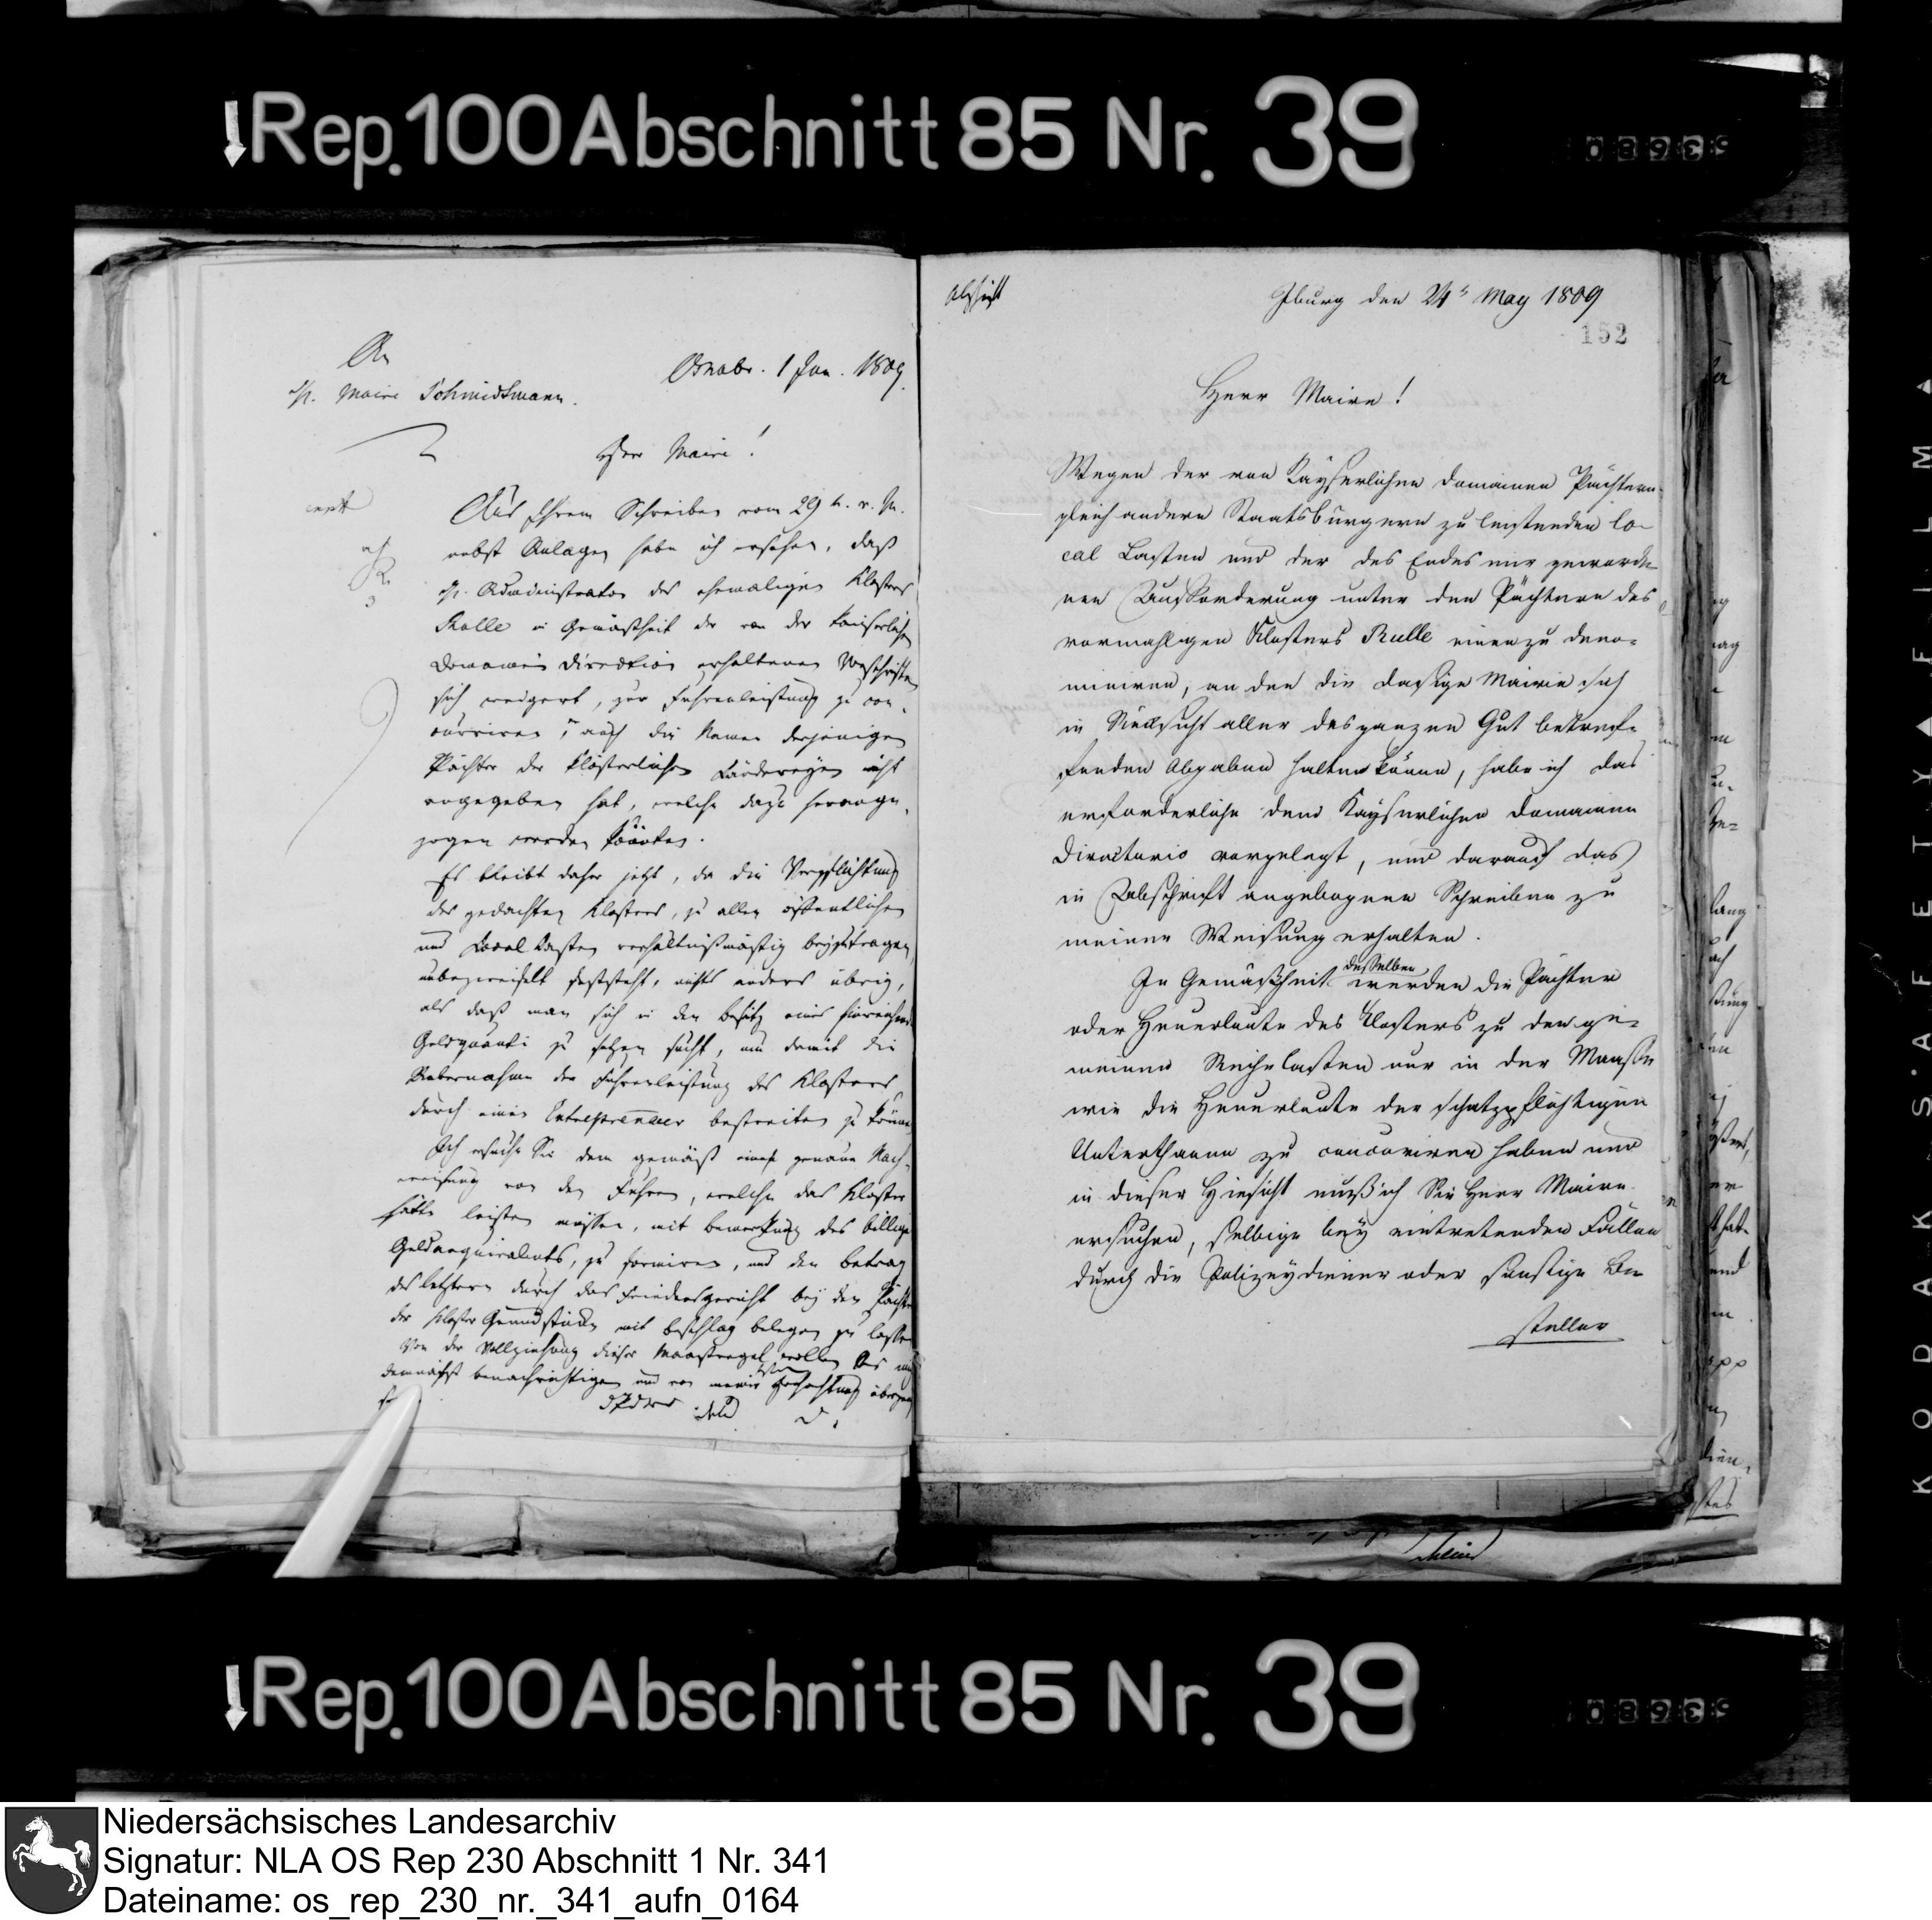 Rep. 100 Abschnitt 85 Nr. 39
An
H. Maire Schmidtmann.
Osnabr. 1 Jun. 1809.
Herr Maire!
Aus Ihrem Schreiben vom 29 t. v. M.
nebst Anlagen habe ich ersehen, daß
H. Administrator des ehemaligen Klosters
Rulle in Gemäsheit der von der Kaiserlichen
Domainen Direction erhaltenen Vorschriften
sich weigert, zur Fuhrenleistung zu con-
curriren, auch die Namen derjenigen
Pächter der klösterlichen Ländereyen nicht
angegeben hat, welche dazu herange-
zogen werden könten.
Es bleibt daher jetzt, da die Verpflichtung
des gedachten Klosters, zu allen öffentlichen
und Local Lasten verhältnißmäsig beyzutragen
unbezweifelt feststeht, nichts anders übrig,
als daß man sich in den Besitz eines hinreichend
Geldquanti zu setzen sucht, um damit die
Uebernahme der Fuhrenleistung des Klosters
durch einen Entrepreneur bestreiten zu können
Ich ersuche Sie dem gemäß eine genaue Nach-
weisung von den Fuhren, welche das Kloster
hätte leisten müssen, mit Bemerkung des billigen
Geldaequivalents, zu formiren, und den Betrag
des letztern durch das Friedensgericht bey den Pächter
der Kloster Grundstücken mit Beschlag belegen zu lassen
Von der Vollziehung dieser Maasregel wollen Sie mich
demnächst benachrichtigen und von meiner Hochachtung überzeugt
Abschrift
Iburg den 24t May 1809
152
Herr Maire!
Wegen der von Kayserlichen Domainen Pächtern
gleich andern Staatsbürgern zu leistenden lo-
cal Lasten und der des Endes mir geworde-
nen Aufforderung unter den Pächtern des
vormahligen Klosters Rulle einen zu deno-
miniren, an den die dasige Mairie sich
in Rücksicht aller das ganzen Gut betref-
fenden Abgaben halten könne, habe ich das
erforderliche dem Kayserlichen Domainen
Directorio vorgelegt, und darauf das
in Abschrift angebogene Schreiben zu
meiner Weisung erhalten.
In Gemäßheit desselben werden die Pächter
oder Heuerleute des Klosters zu den ge-
meinen Reihelasten nur in der Maaße
wie die Heuerleute der schatzpflichtigen
Unterthanen zu concurriren haben und
in dieser Hinsicht muß ich Sie Herr Maire
ersuchen, selbige bey eintretenden Fällen
durch die Polizeydiener oder sonstige Be-
steller
Rep. 100 Abschnitt 85 Nr. 39
KODAK SAFETY FILM
Niedersächsisches Landesarchiv
Signatur: NLA OS Rep 230 Abschnitt 1 Nr. 341
Dateiname: os_rep_230_nr._341_aufn_0164